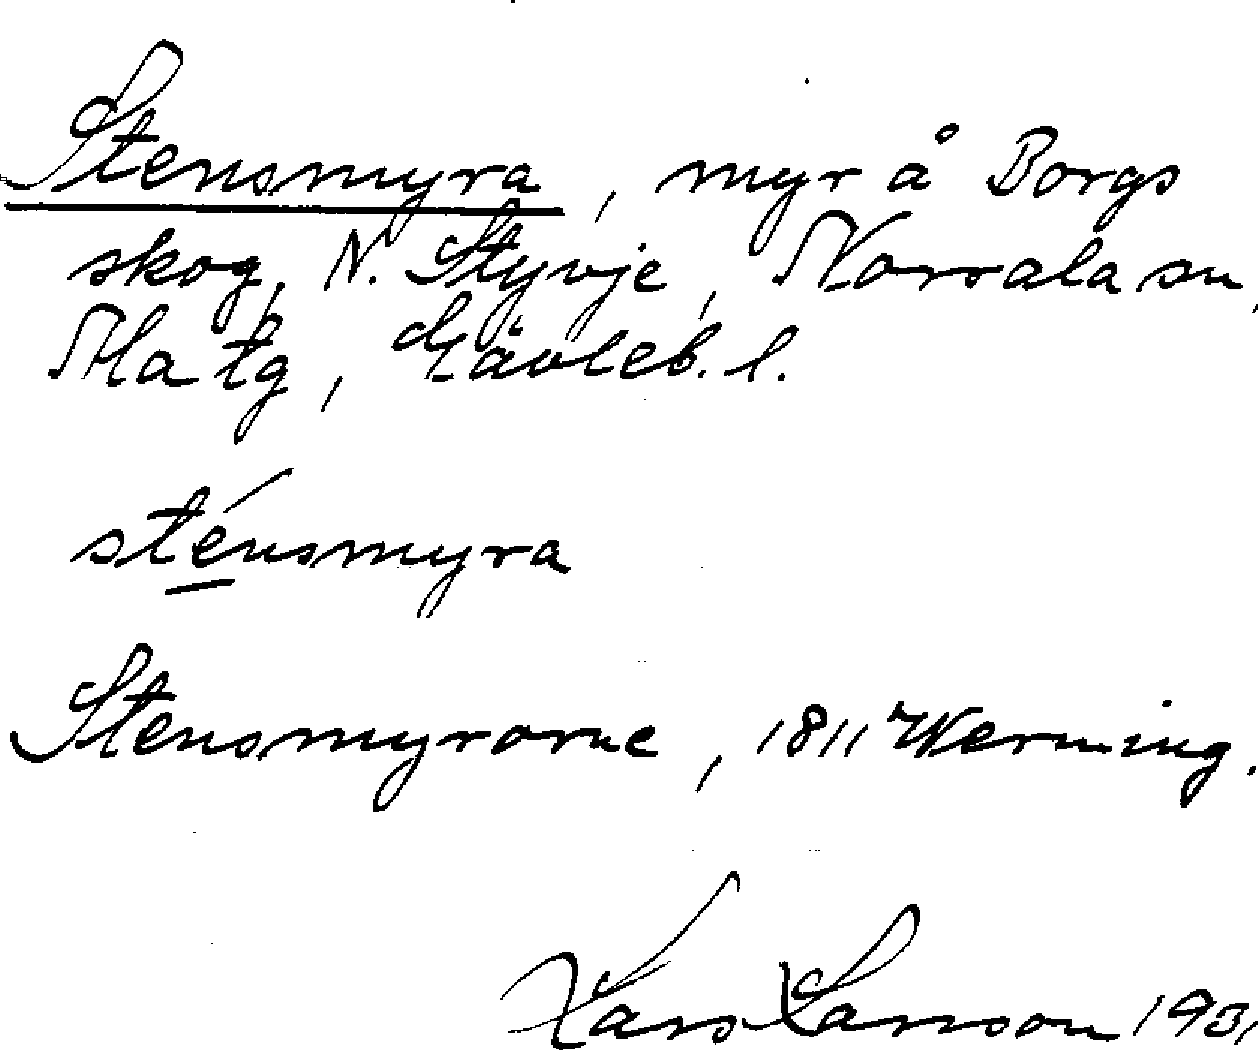 Stensmyra, myr å Borgs
skog, N. Styvje, Norrala sn,
Ala tg, Gävleb. l.
sténsmyra
Stensmyrorne, 1811 Werning.
Lars Larsson 1931